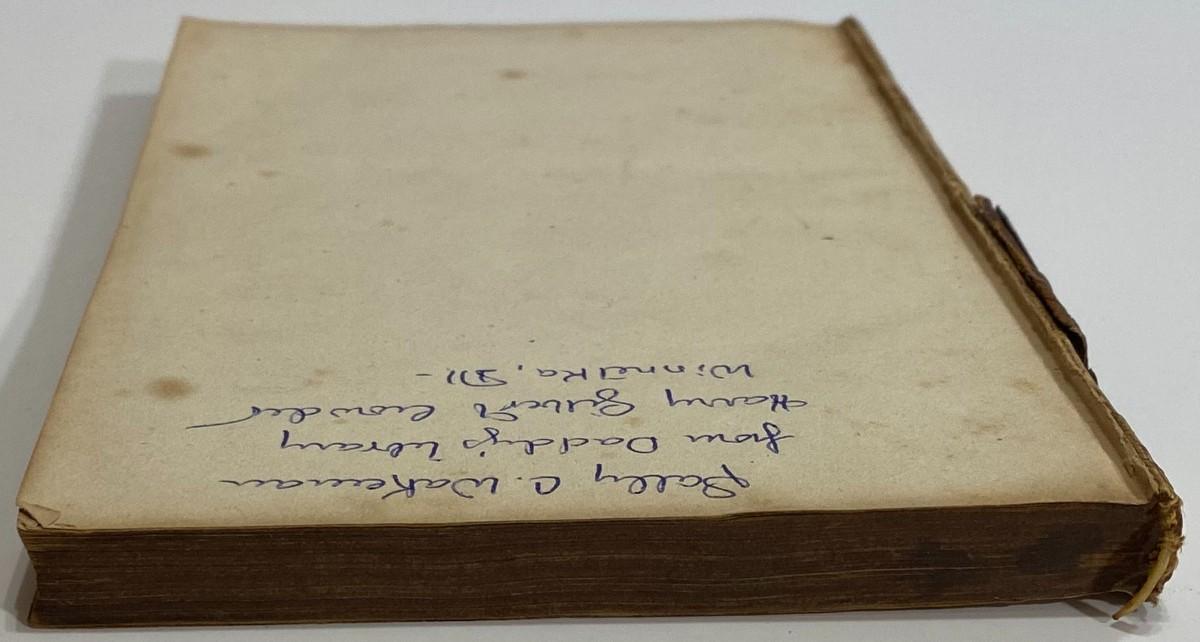 Sally C. Wakeman
from Daddy's library
Harry Gilbert Crowder
Winnetka, Ill-